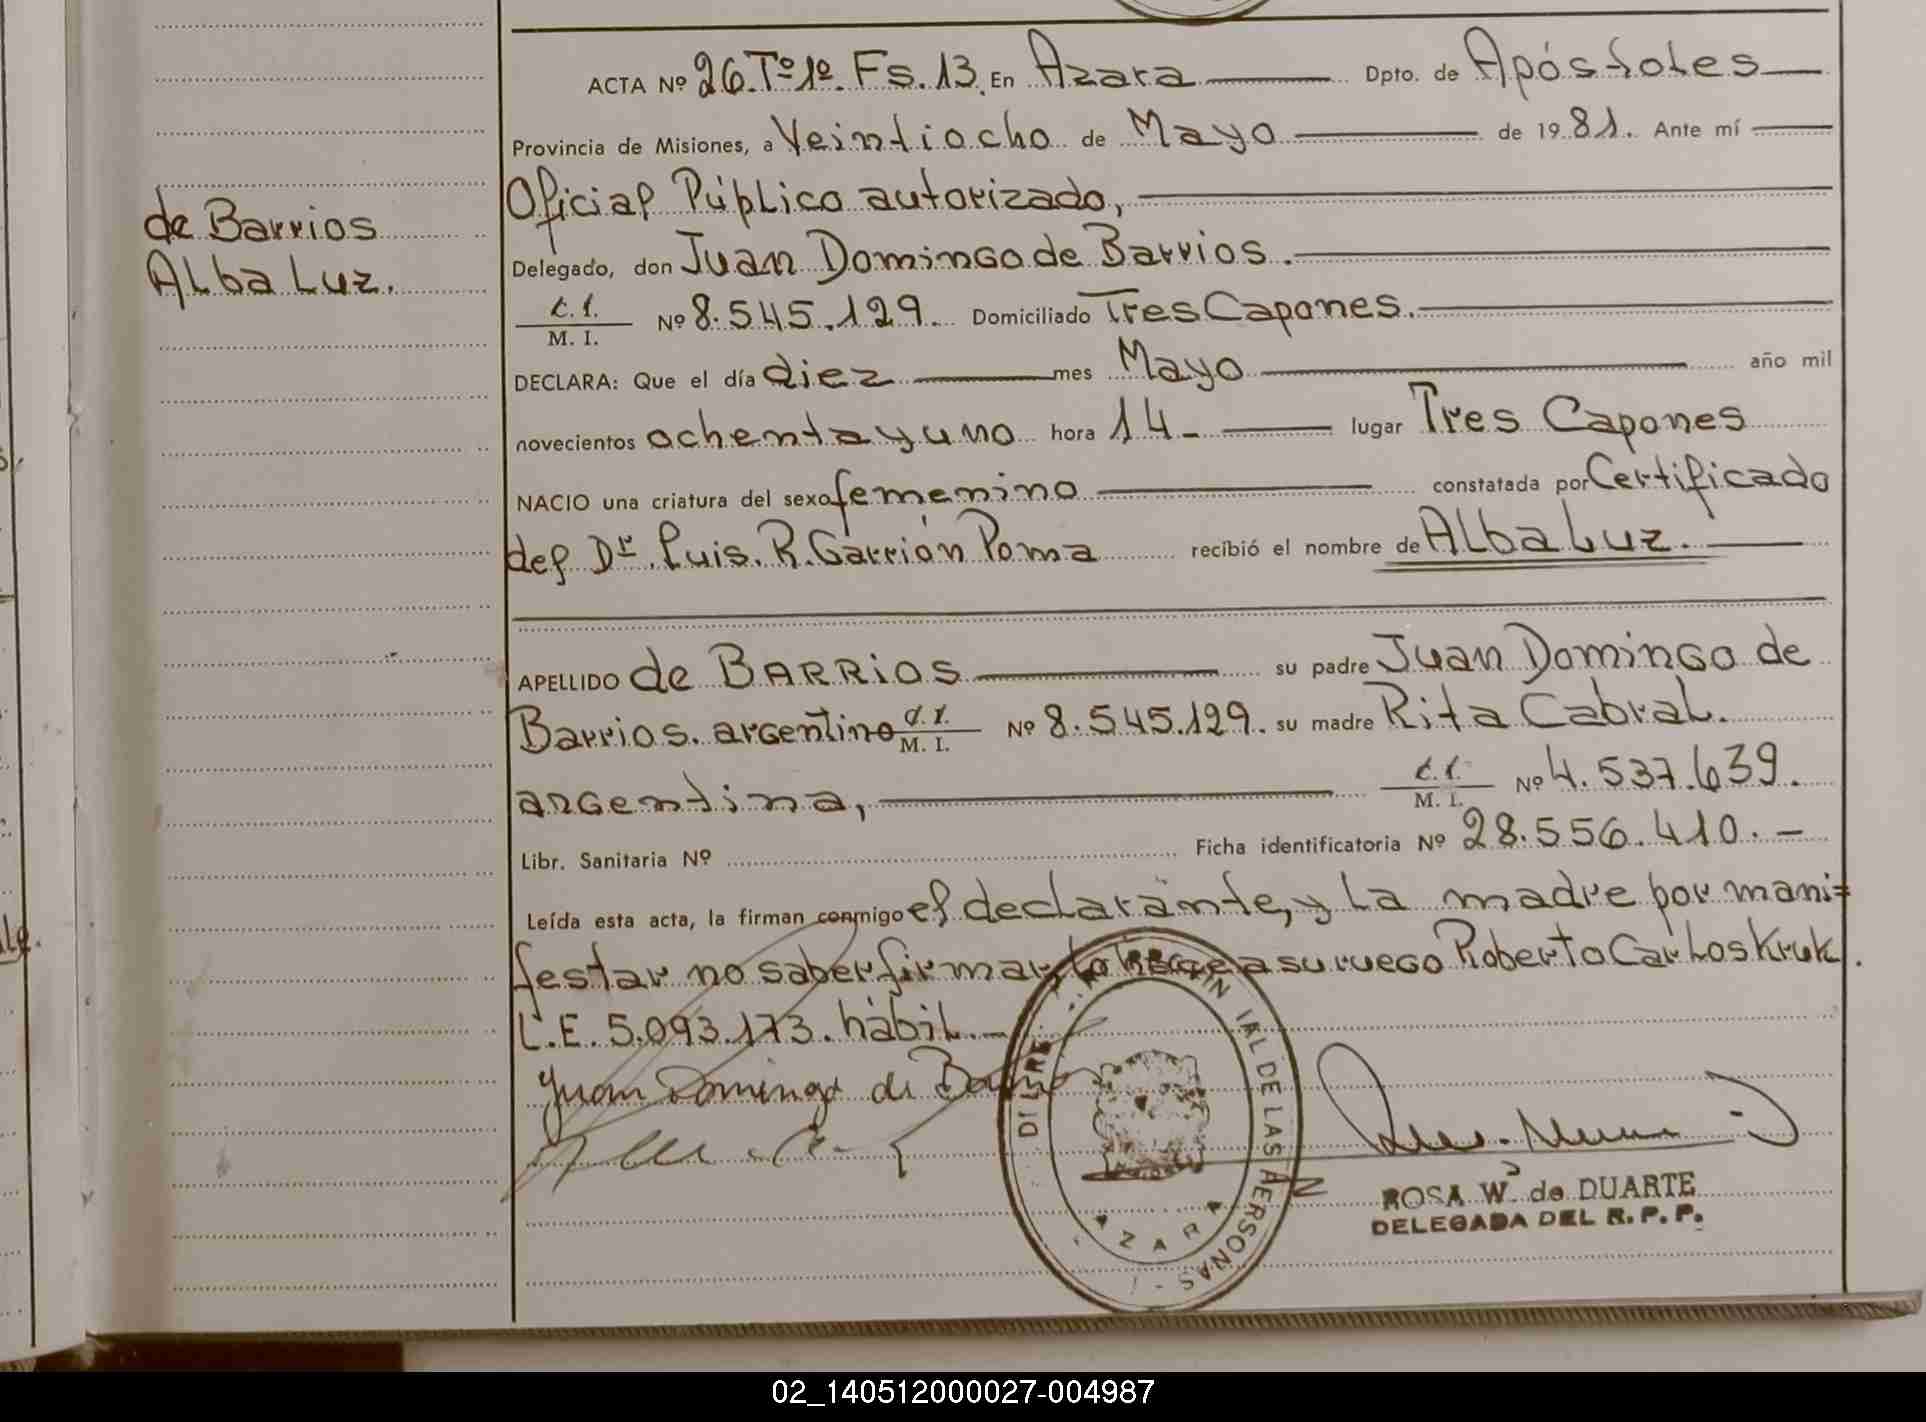 de Barrios
Alba Luz.
ACTA Nº 26.Tº1º. Fs. 13. En Azara Dpto. de Apóstoles
Provincia de Misiones, a Veintiocho de Mayo de 1981. Ante mí
Oficial Público autorizado,
Delegado, don Juan Domingo de Barrios.
M. I. Nº 8.545.129. Domiciliado Tres Capones.
DECLARA: Que el día diez mes Mayo año mil
novecientos ochenta y uno hora 14 - lugar Tres Capones
NACIO una criatura del sexo femenino constatada por Certificado
del Dr. Luis. R. Garrión Poma recibió el nombre de Alba Luz.
APELLIDO de BARRIOS su padre Juan Domingo de
Barrios. argentino M. I. Nº 8.545.129. su madre Rita Cabral.
argentina, M. I. Nº 4.537.639.
Libr. Sanitaria Nº Ficha identificatoria Nº 28.556.410.-
Leída esta acta, la firman conmigo el declarante, y la madre por mani=
festar no saber firmar, lo hace a su ruego Roberto Carlos Kruk.
L.E. 5.093.173. hábil.-
Juan Domingo de Barrios
AZARA
ROSA W. de DUARTE
DELEGADA DEL R. P. P.
02_140512000027-004987